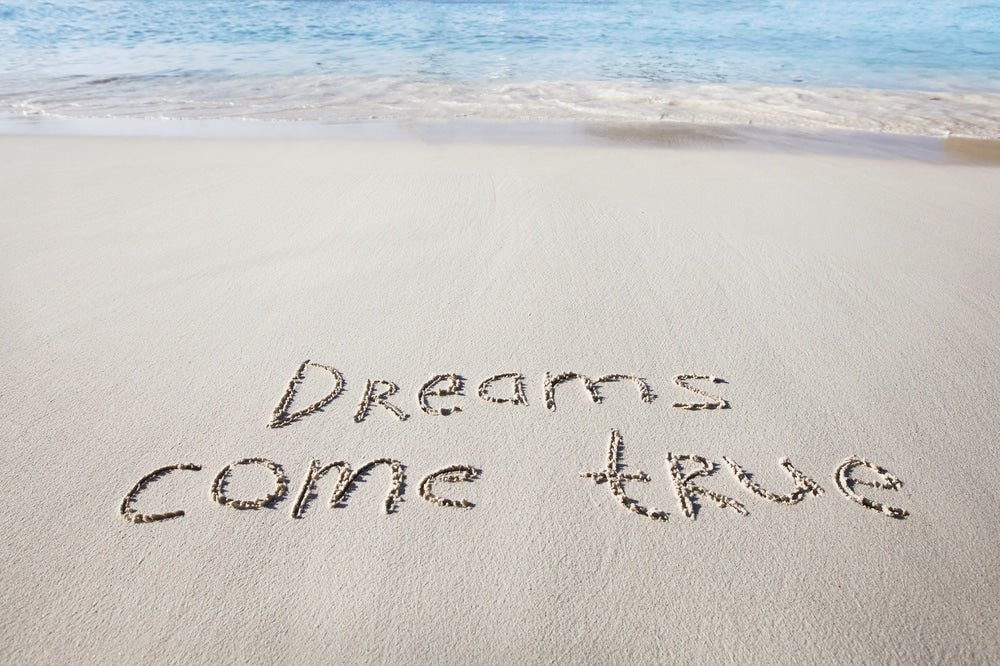 Dreams
come true